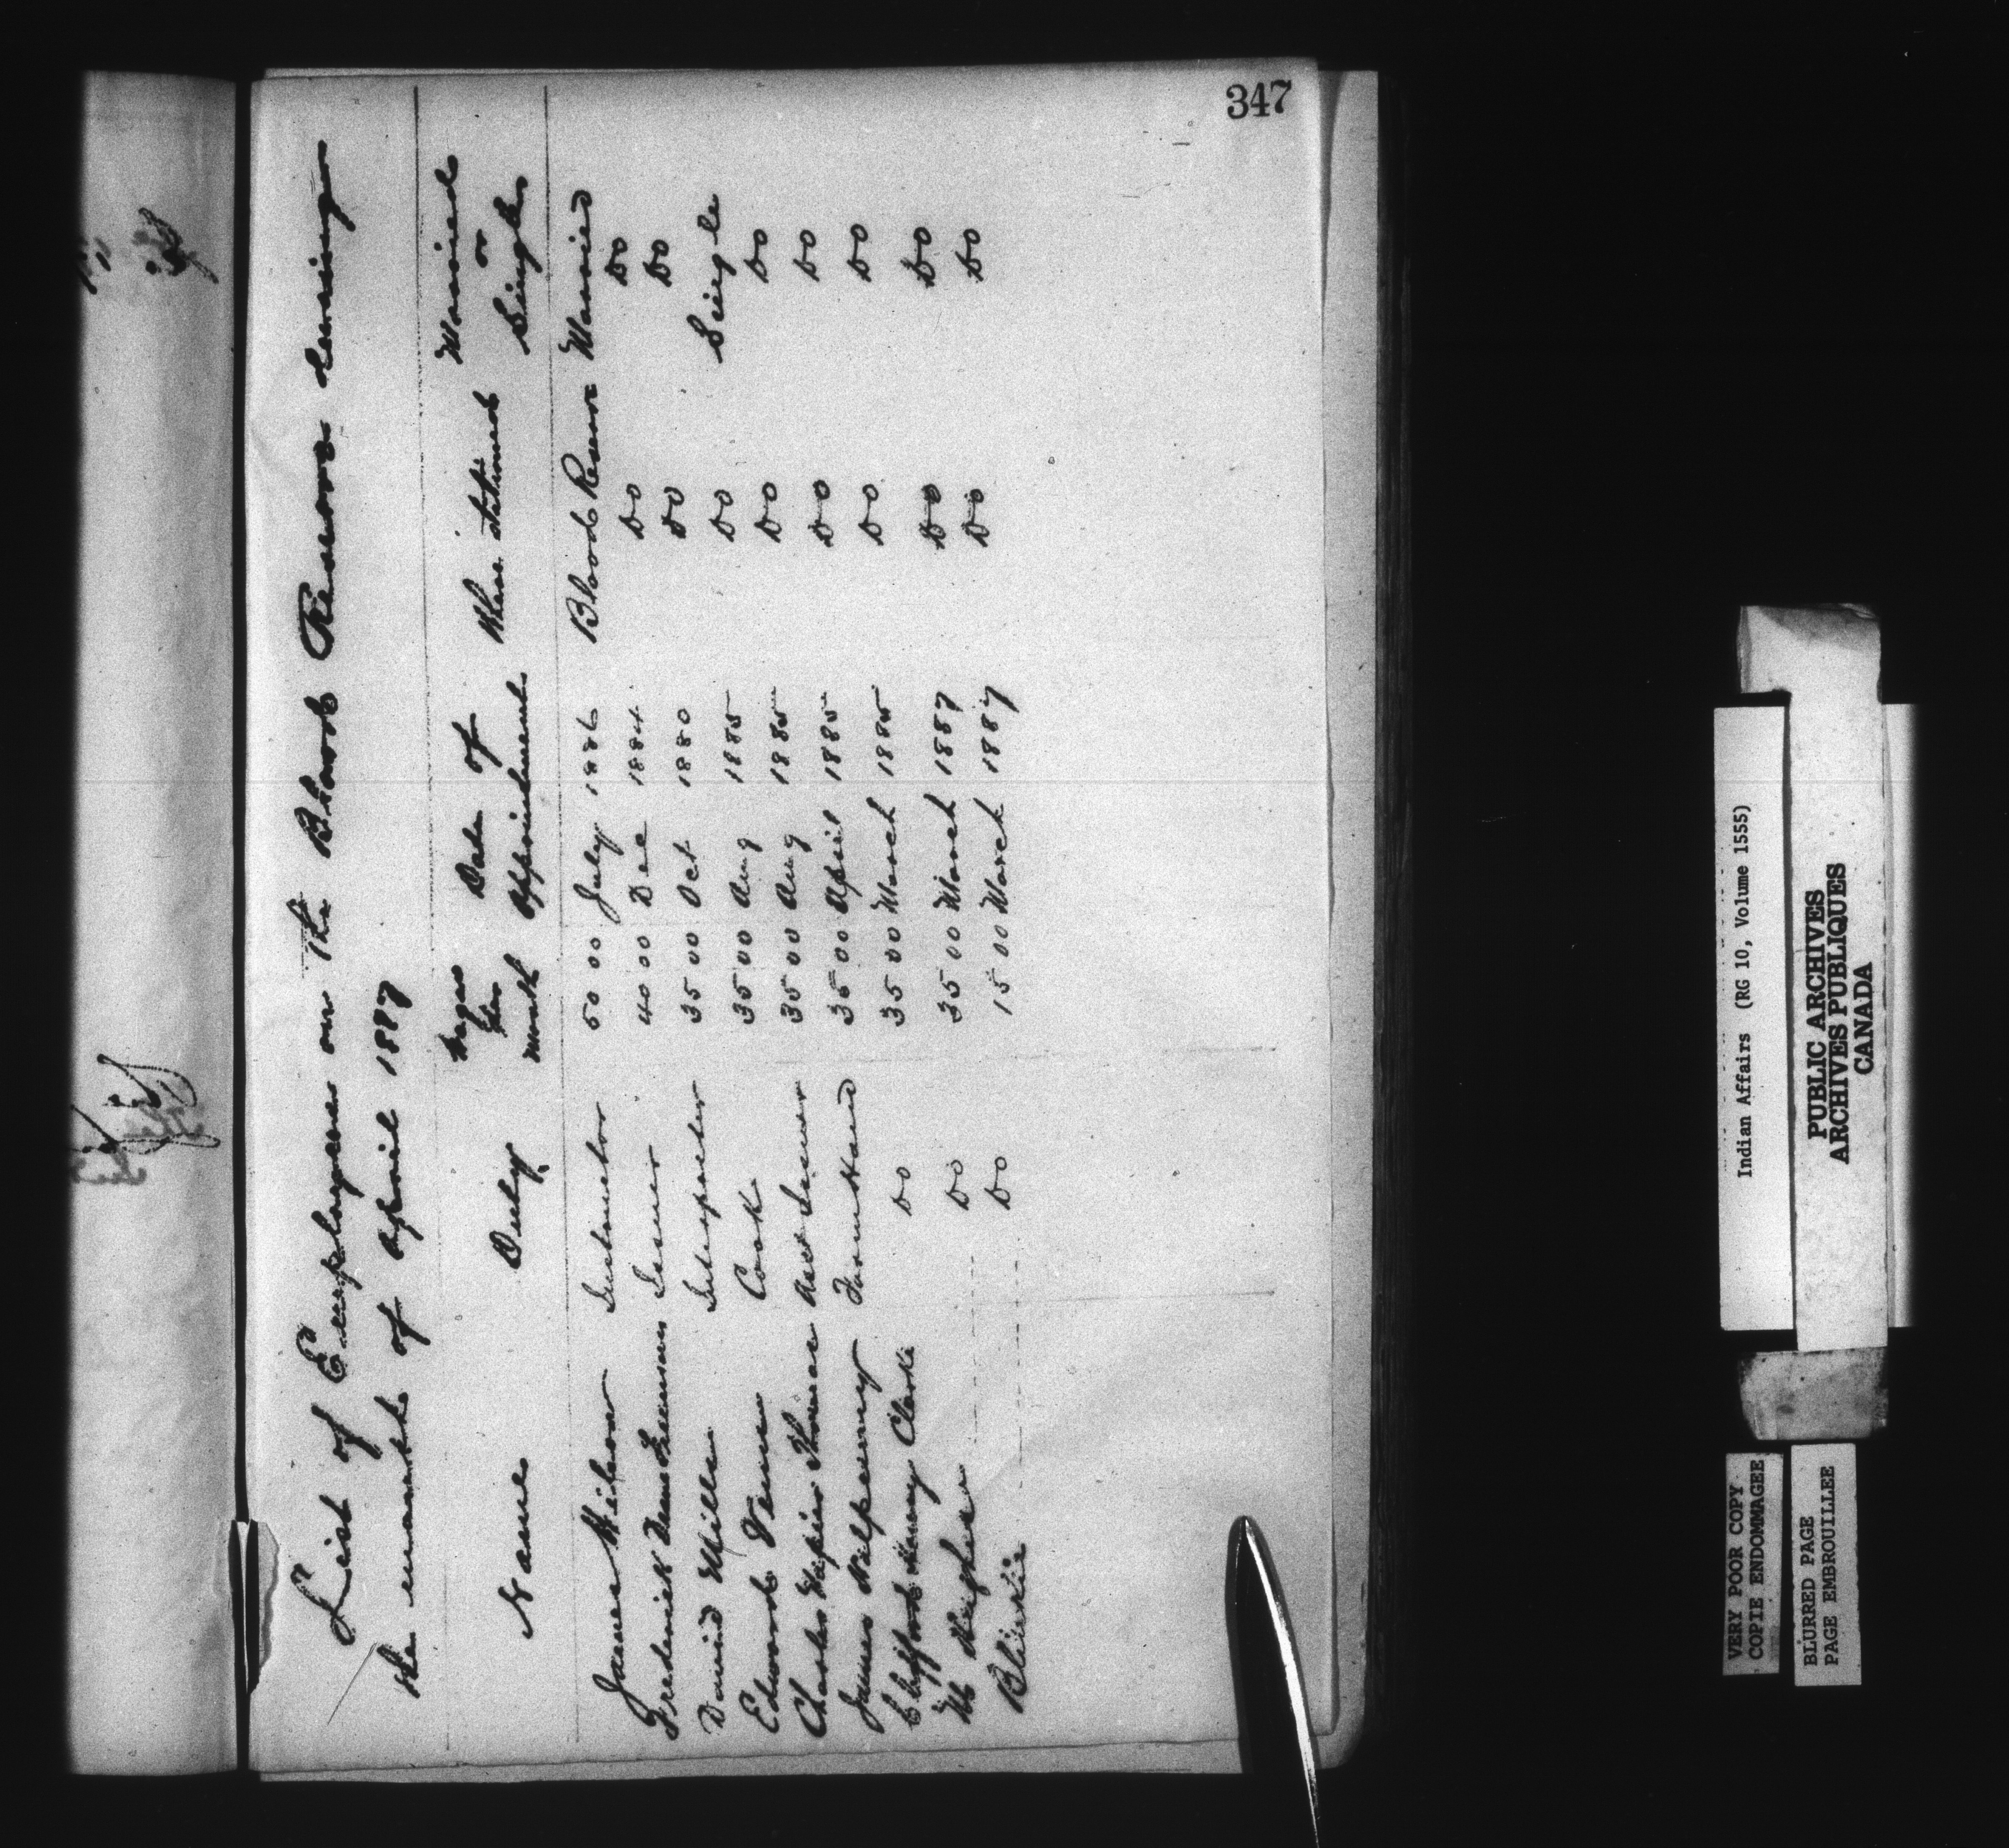 347
List of Employees on the Blood Reserve during
the month of April 1887
Name Duty Wages per month Date of appointment Where stationed Married or Single
James Wilson Instructor 50 00 July 1886 Blood Reserve Married
Frederick Issuer 40 00 Dec 1884 Do Do
David Mills Interpreter 35 00 Oct 1880 Do Do
Edward Cook 35 00 Aug 1885 Do Single
Charles Napier Thomas Asst Issuer 35 00 Aug 1885 Do Do
James Farm Hand 35 00 April 1885 Do Do
Clifford Henry Clarke Do 35 00 March 1885 Do Do
Do 35 00 March 1887 Do Do
Do 15 00 March 1887 Do Do
Indian Affairs (RG 10, Volume 1555)
PUBLIC ARCHIVES
ARCHIVES PUBLIQUES
CANADA
VERY POOR COPY
COPIE ENDOMMAGEE
BLURRED PAGE
PAGE EMBROUILLEE